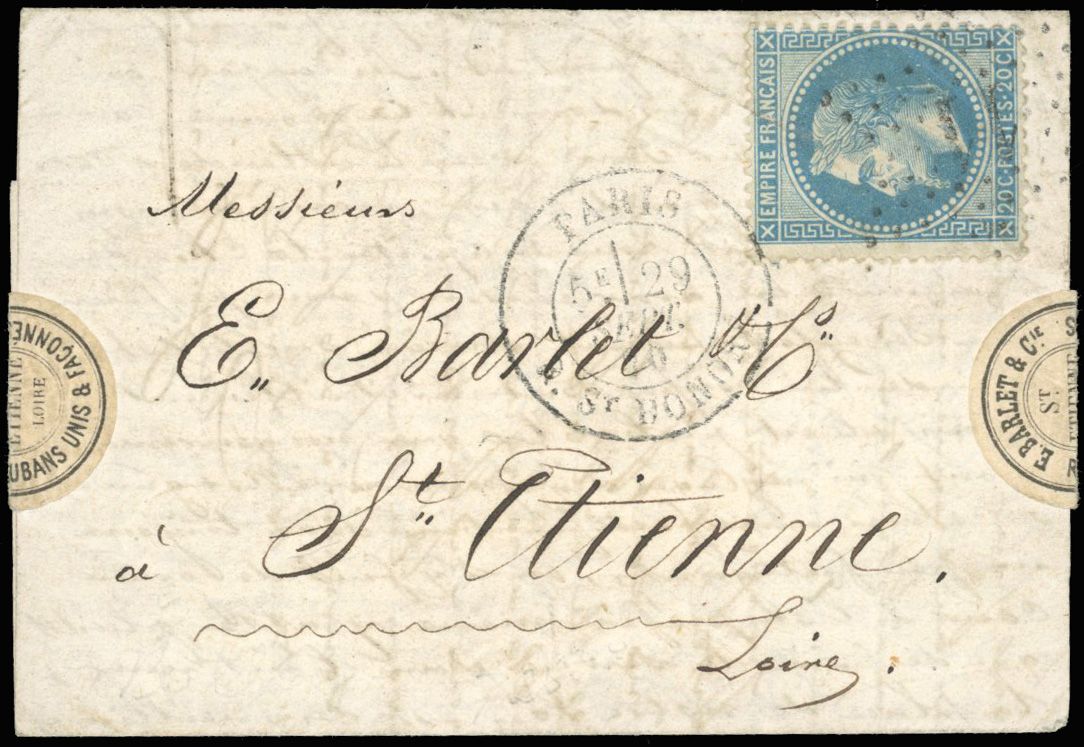 EMPIRE FRANCAIS
20C·POSTES·20C
Messieurs
PARIS
5E 29
SEPT.
P. St HONORÉ
E. Barlet & Cie
à St Etienne.
Loire.
ETIENNE
LOIRE
UBANS UNIS & FAÇONNÉ
E. BARLET & CIE
ST
ETIENNE